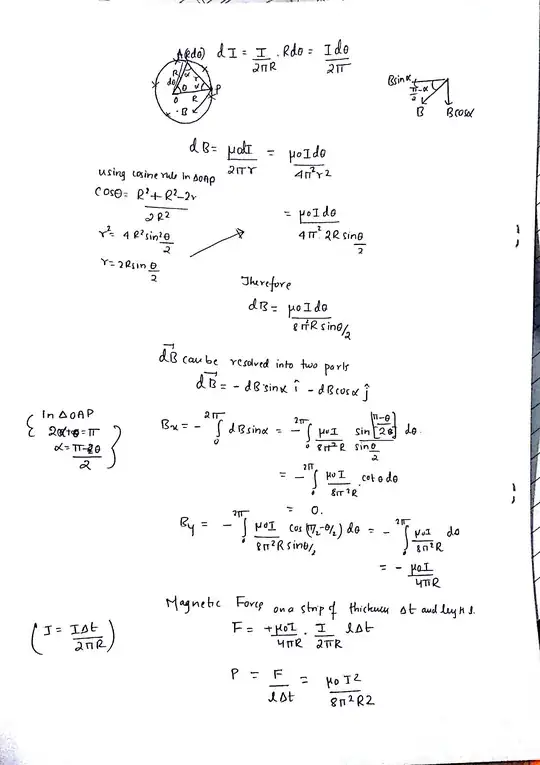 A(Rdθ)
R
dθ
α
r
θ
O
R
P
B
dI = I/2πR . Rdθ = Idθ/2π
Bsinα
π/2-α
B
Bcosα
dB = μ0dI/2πr = μ0Idθ/4π²r2
using cosine rule in ΔOAP
cosθ = R²+R²-2r/2R²
= μ0Idθ/4π² 2R sinθ/2
r² = 4R²sin²θ/2
r = 2Rsin θ/2
Therefore
dB = μ0Idθ/8π²R sinθ/2
dB can be resolved into two parts
dB = - dB sinα î - dB cosα ĵ
In ΔOAP
2α+θ=π
Bx = - ∫₀^2π dB sinα = - ∫₀^2π μ0I/8π²R sin[π-θ/2θ]/sinθ/2 dθ.
= - ∫₀^2π μ0I/8π²R . cotθ dθ
= 0.
By = - ∫₀^2π μ0I/8π²R sinθ/2 cos(π/2-θ/2) dθ = - ∫₀^2π μ0I/8π²R dθ
= - μ0I/4πR
Magnetic Force on a strip of thickness Δt and length l.
(I = IΔt/2πR)
F = +μ0I/4πR . I/2πR lΔt
P = F/lΔt = μ0I2/8π²R2